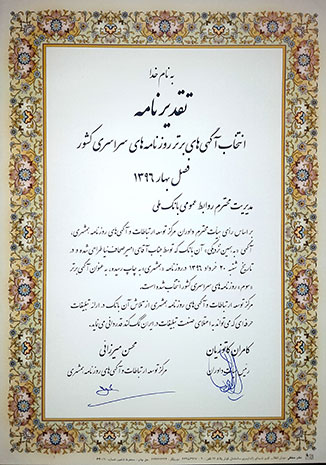 به نام خدا
تقدیرنامه
انتخاب آگهی‌های برتر روزنامه‌های سراسری کشور
فصل بهار ۱۳۹۶
مدیریت محترم روابط عمومی بانک ملی
بر اساس رای هیات محترم داوران مرکز توسعه ارتباطات و آگهی‌های روزنامه همشهری،
آگهی «به همین نزدیکی» آن بانک که توسط جناب آقای امیر صحاف‌نیا طراحی شده و در
تاریخ شنبه ۲۰ خرداد ۱۳۹۶ در روزنامه «همشهری» به چاپ رسید، به عنوان آگهی برتر
«سوم» روزنامه‌های سراسری کشور انتخاب شده است.
مرکز توسعه ارتباطات و آگهی‌های روزنامه همشهری از تلاش آن بانک در ارائه تبلیغات
حرفه‌ای که می‌تواند به اعتلای صنعت تبلیغات در ایران کمک کند قدردانی می‌نماید.
کامران کاتوزیان
رئیس هیات داوران
محسن میرزائی
مرکز توسعه ارتباطات و آگهی‌های روزنامه همشهری